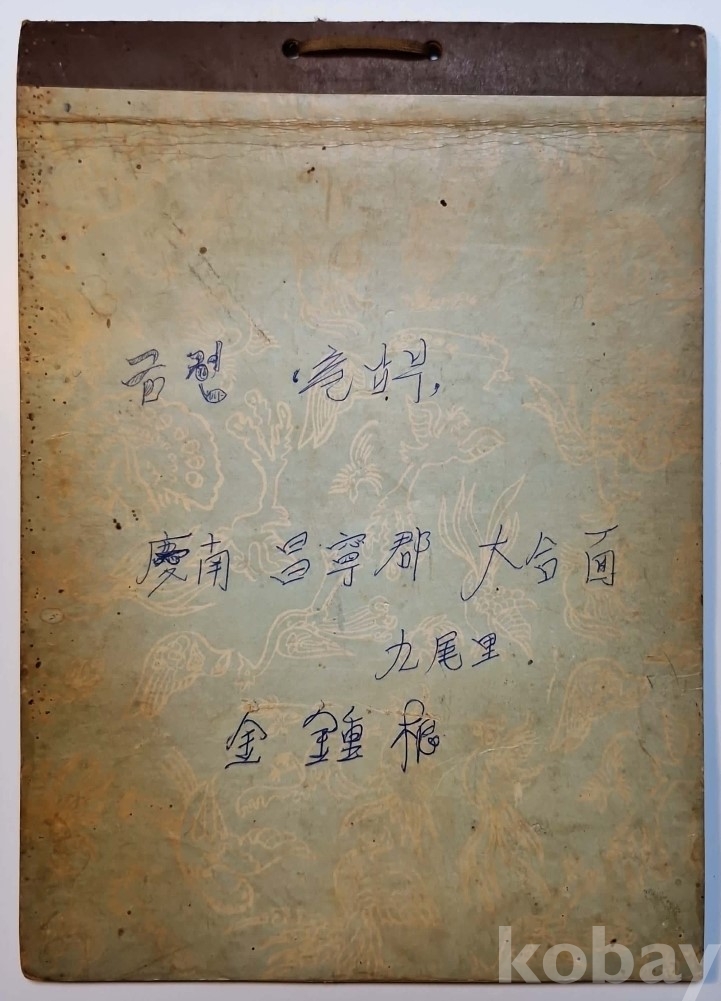 慶南 昌寧郡 大合面
九尾里
金 鍾 根
kobay